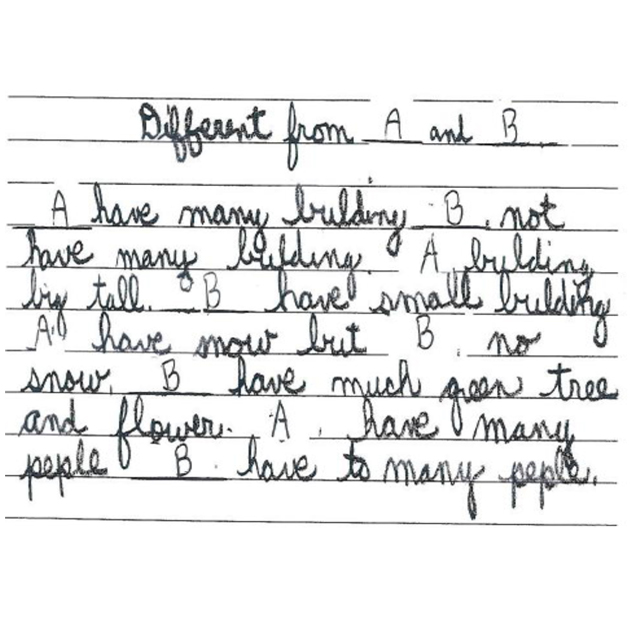 Different from A and B
A have many bulding B not
have many bulding. A bulding
big tall. B have small bulding
A have snow but B no
snow. B have much green tree
and flower. A have many
peple B have to many peple.